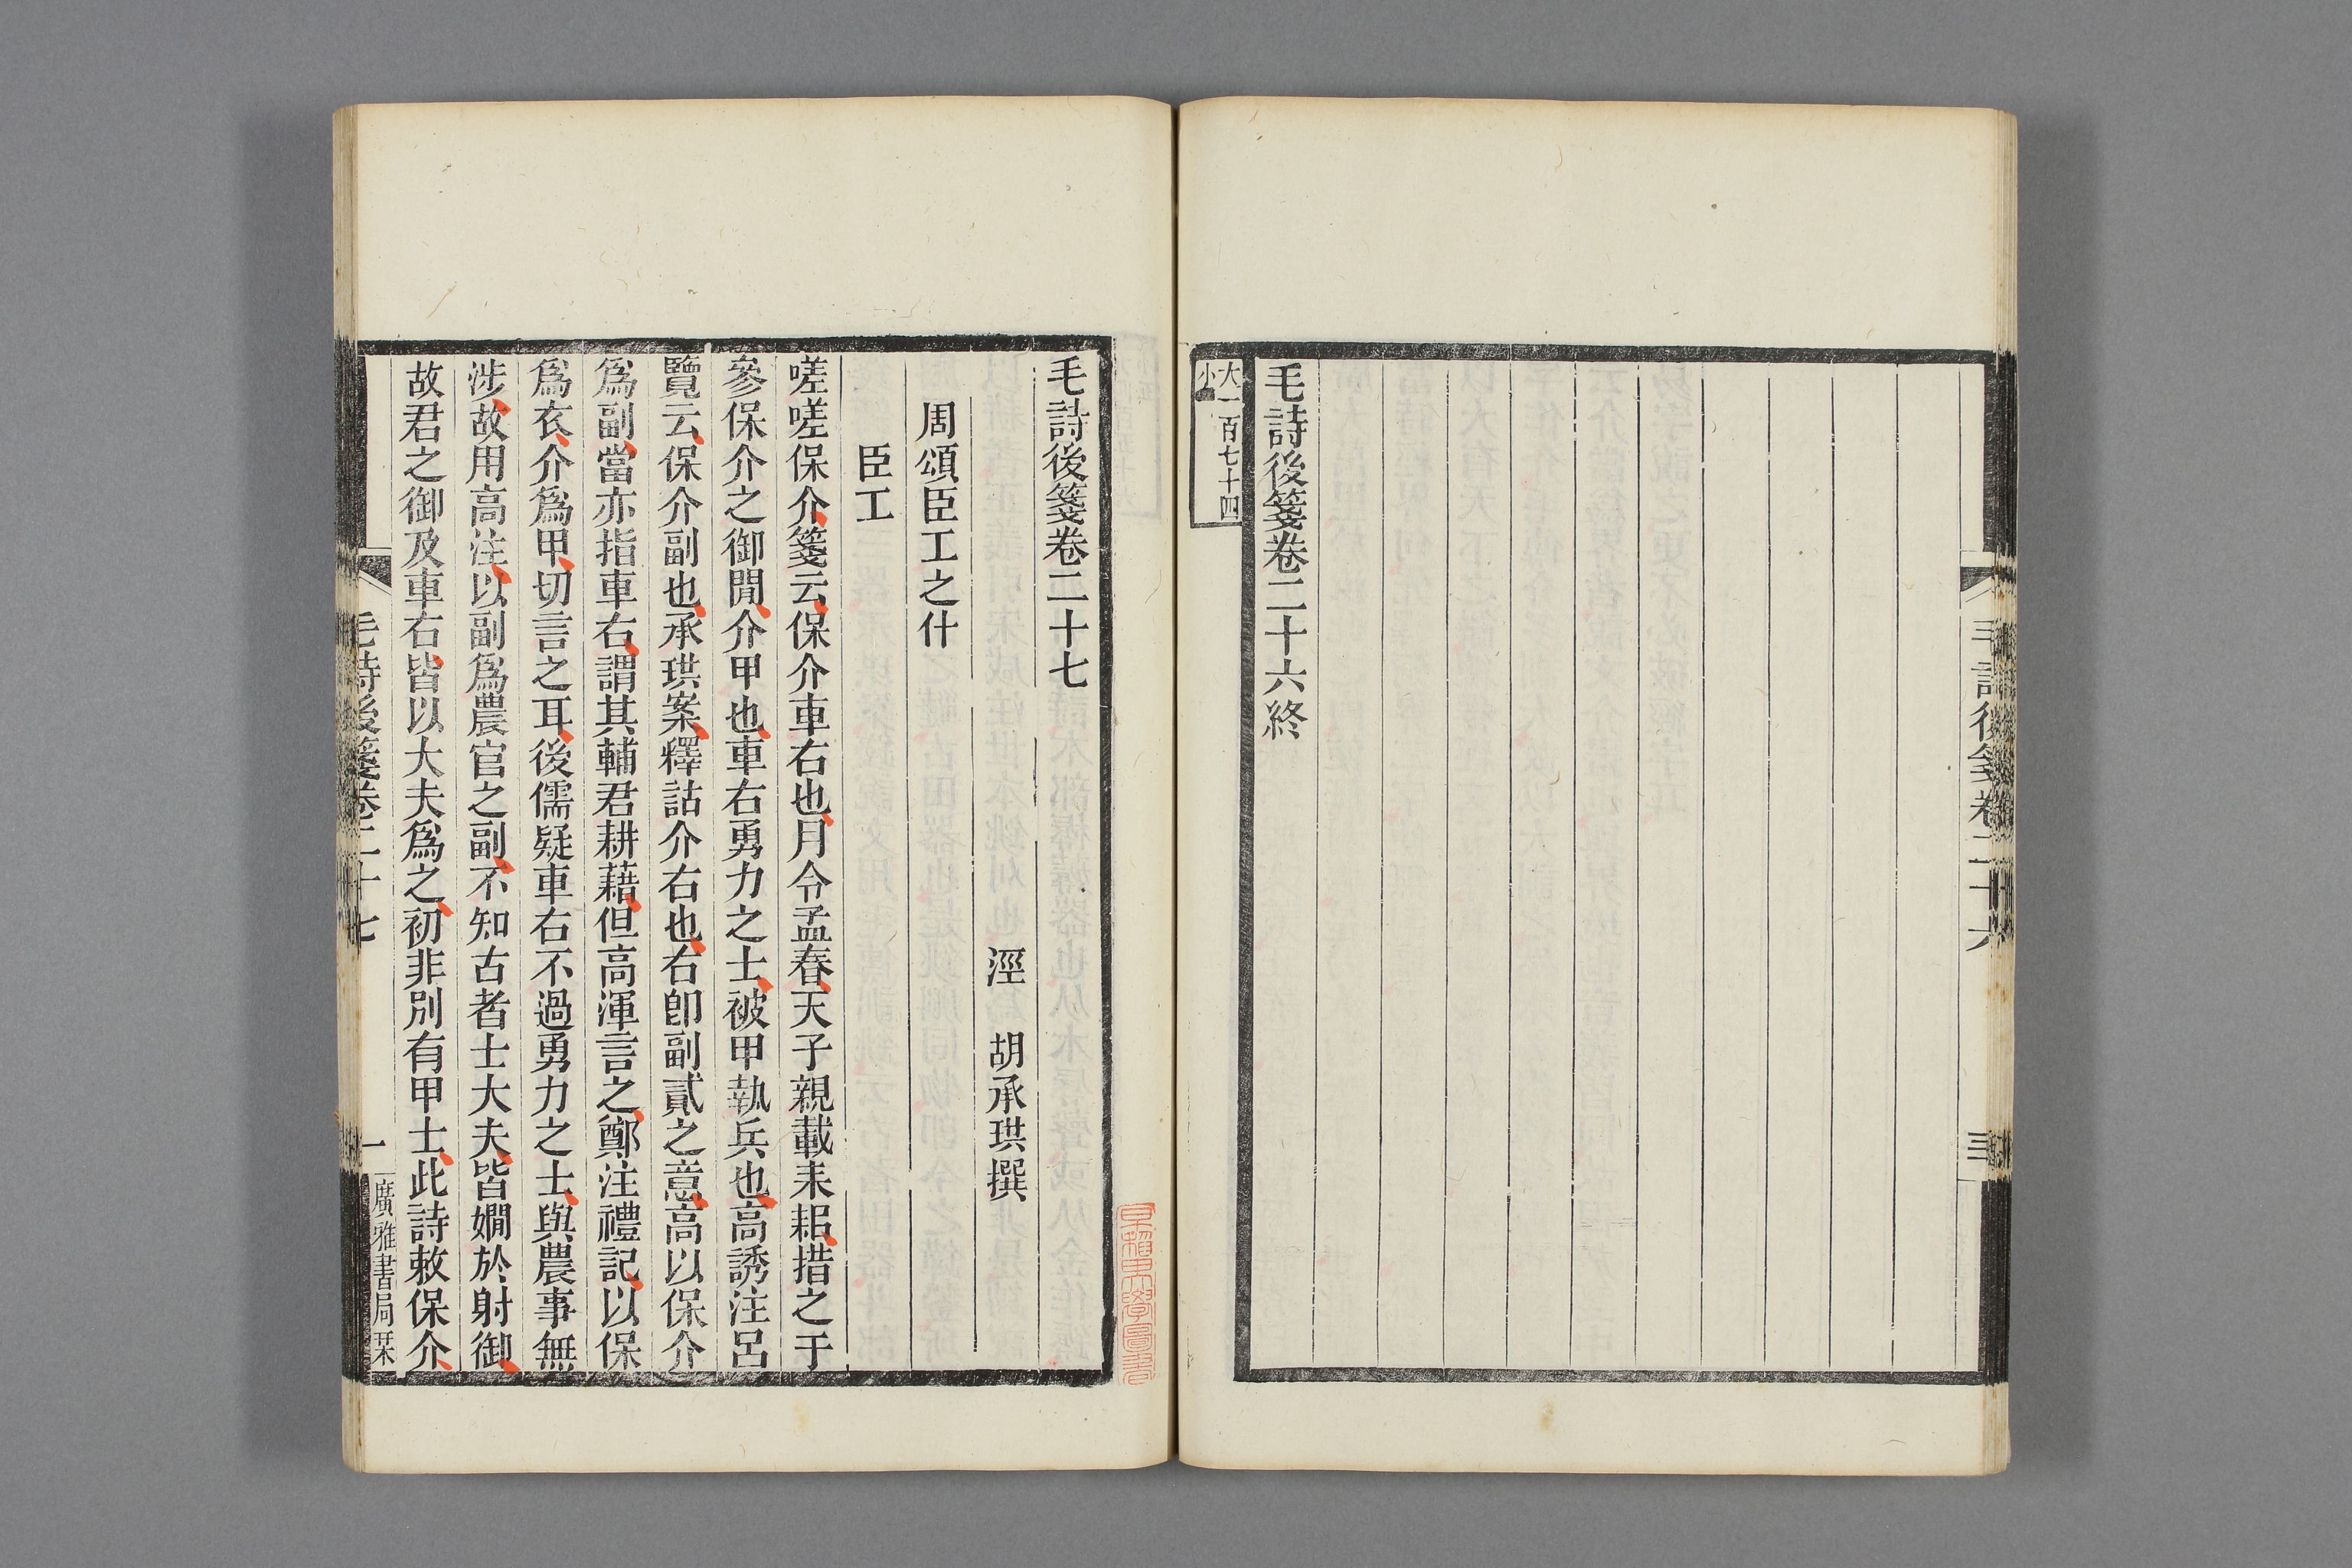 毛詩後箋卷二十六
毛詩後箋卷二十六終
大一百七十四
小
毛詩後箋卷二十七
涇 胡承珙撰
周頌臣工之什
臣工
嗟嗟保介箋云保介車右也月令孟春天子親載耒耜措之于
參保介之御閒介甲也車右勇力之士被甲執兵也高誘注呂
覽云保介副也承珙案釋詁介右也右卽副貳之意高以保介
爲副當亦指車右謂其輔君耕藉但高渾言之鄭注禮記以保
爲衣介爲甲切言之耳後儒疑車右不過勇力之士與農事無
涉故用高注以副爲農官之副不知古者士大夫皆嫺於射御
故君之御及車右皆以大夫爲之初非別有甲士此詩敕保介
毛詩後箋卷二十七
一
廣雅書局栞
早稻田大學圖書